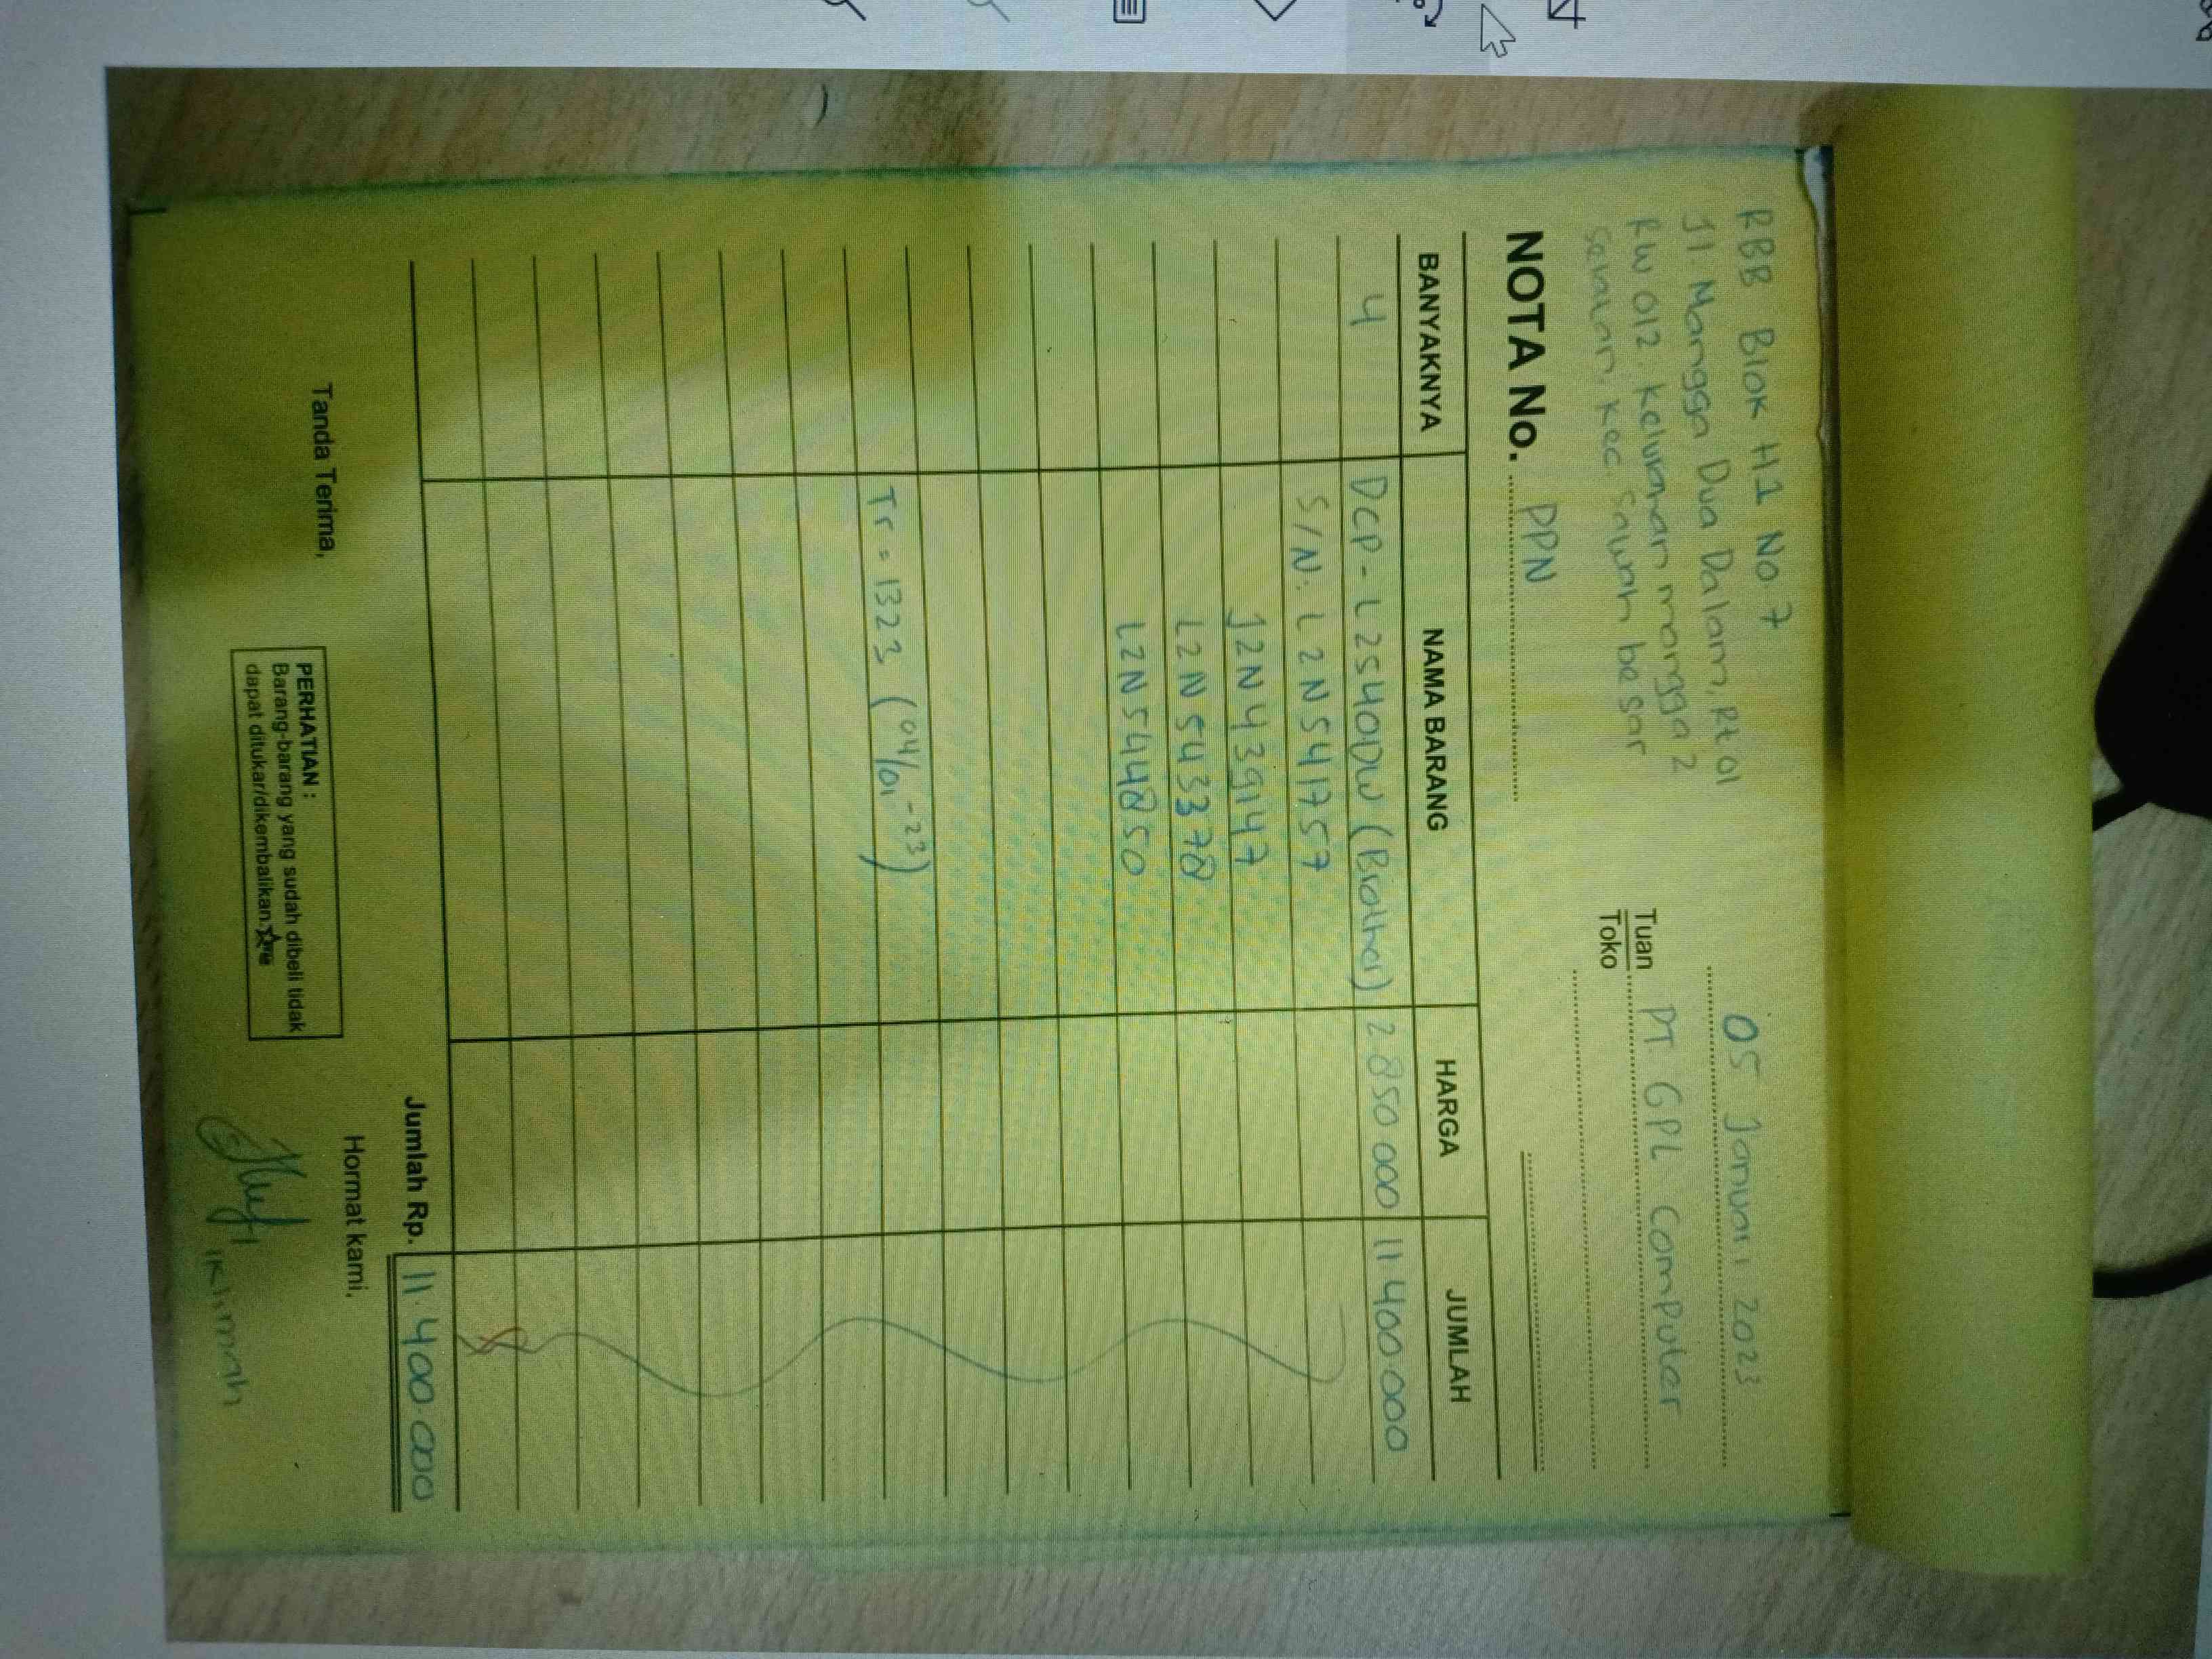 RBB Blok H1 No 7
Jl. Mangga Dua Dalam, Rt 01
RW 012, Kelurahan mangga 2
selatan, Kec. Sawah besar
05 Januari 2023
Tuan
Toko
PT. GPL Computer
NOTA No. PPN
BANYAKNYA NAMA BARANG HARGA JUMLAH
4 DCP-L2540DW (Brother) 2 850 000 11 400 000
S/N: L2N541757
J2N439147
L2N543378
L2N544850
Tr = 1323 (04/01-23)
Jumlah Rp. 11.400.000
Tanda Terima,
PERHATIAN :
Barang-barang yang sudah dibeli tidak
dapat ditukar/dikembalikan
Hormat kami,
Iklimah